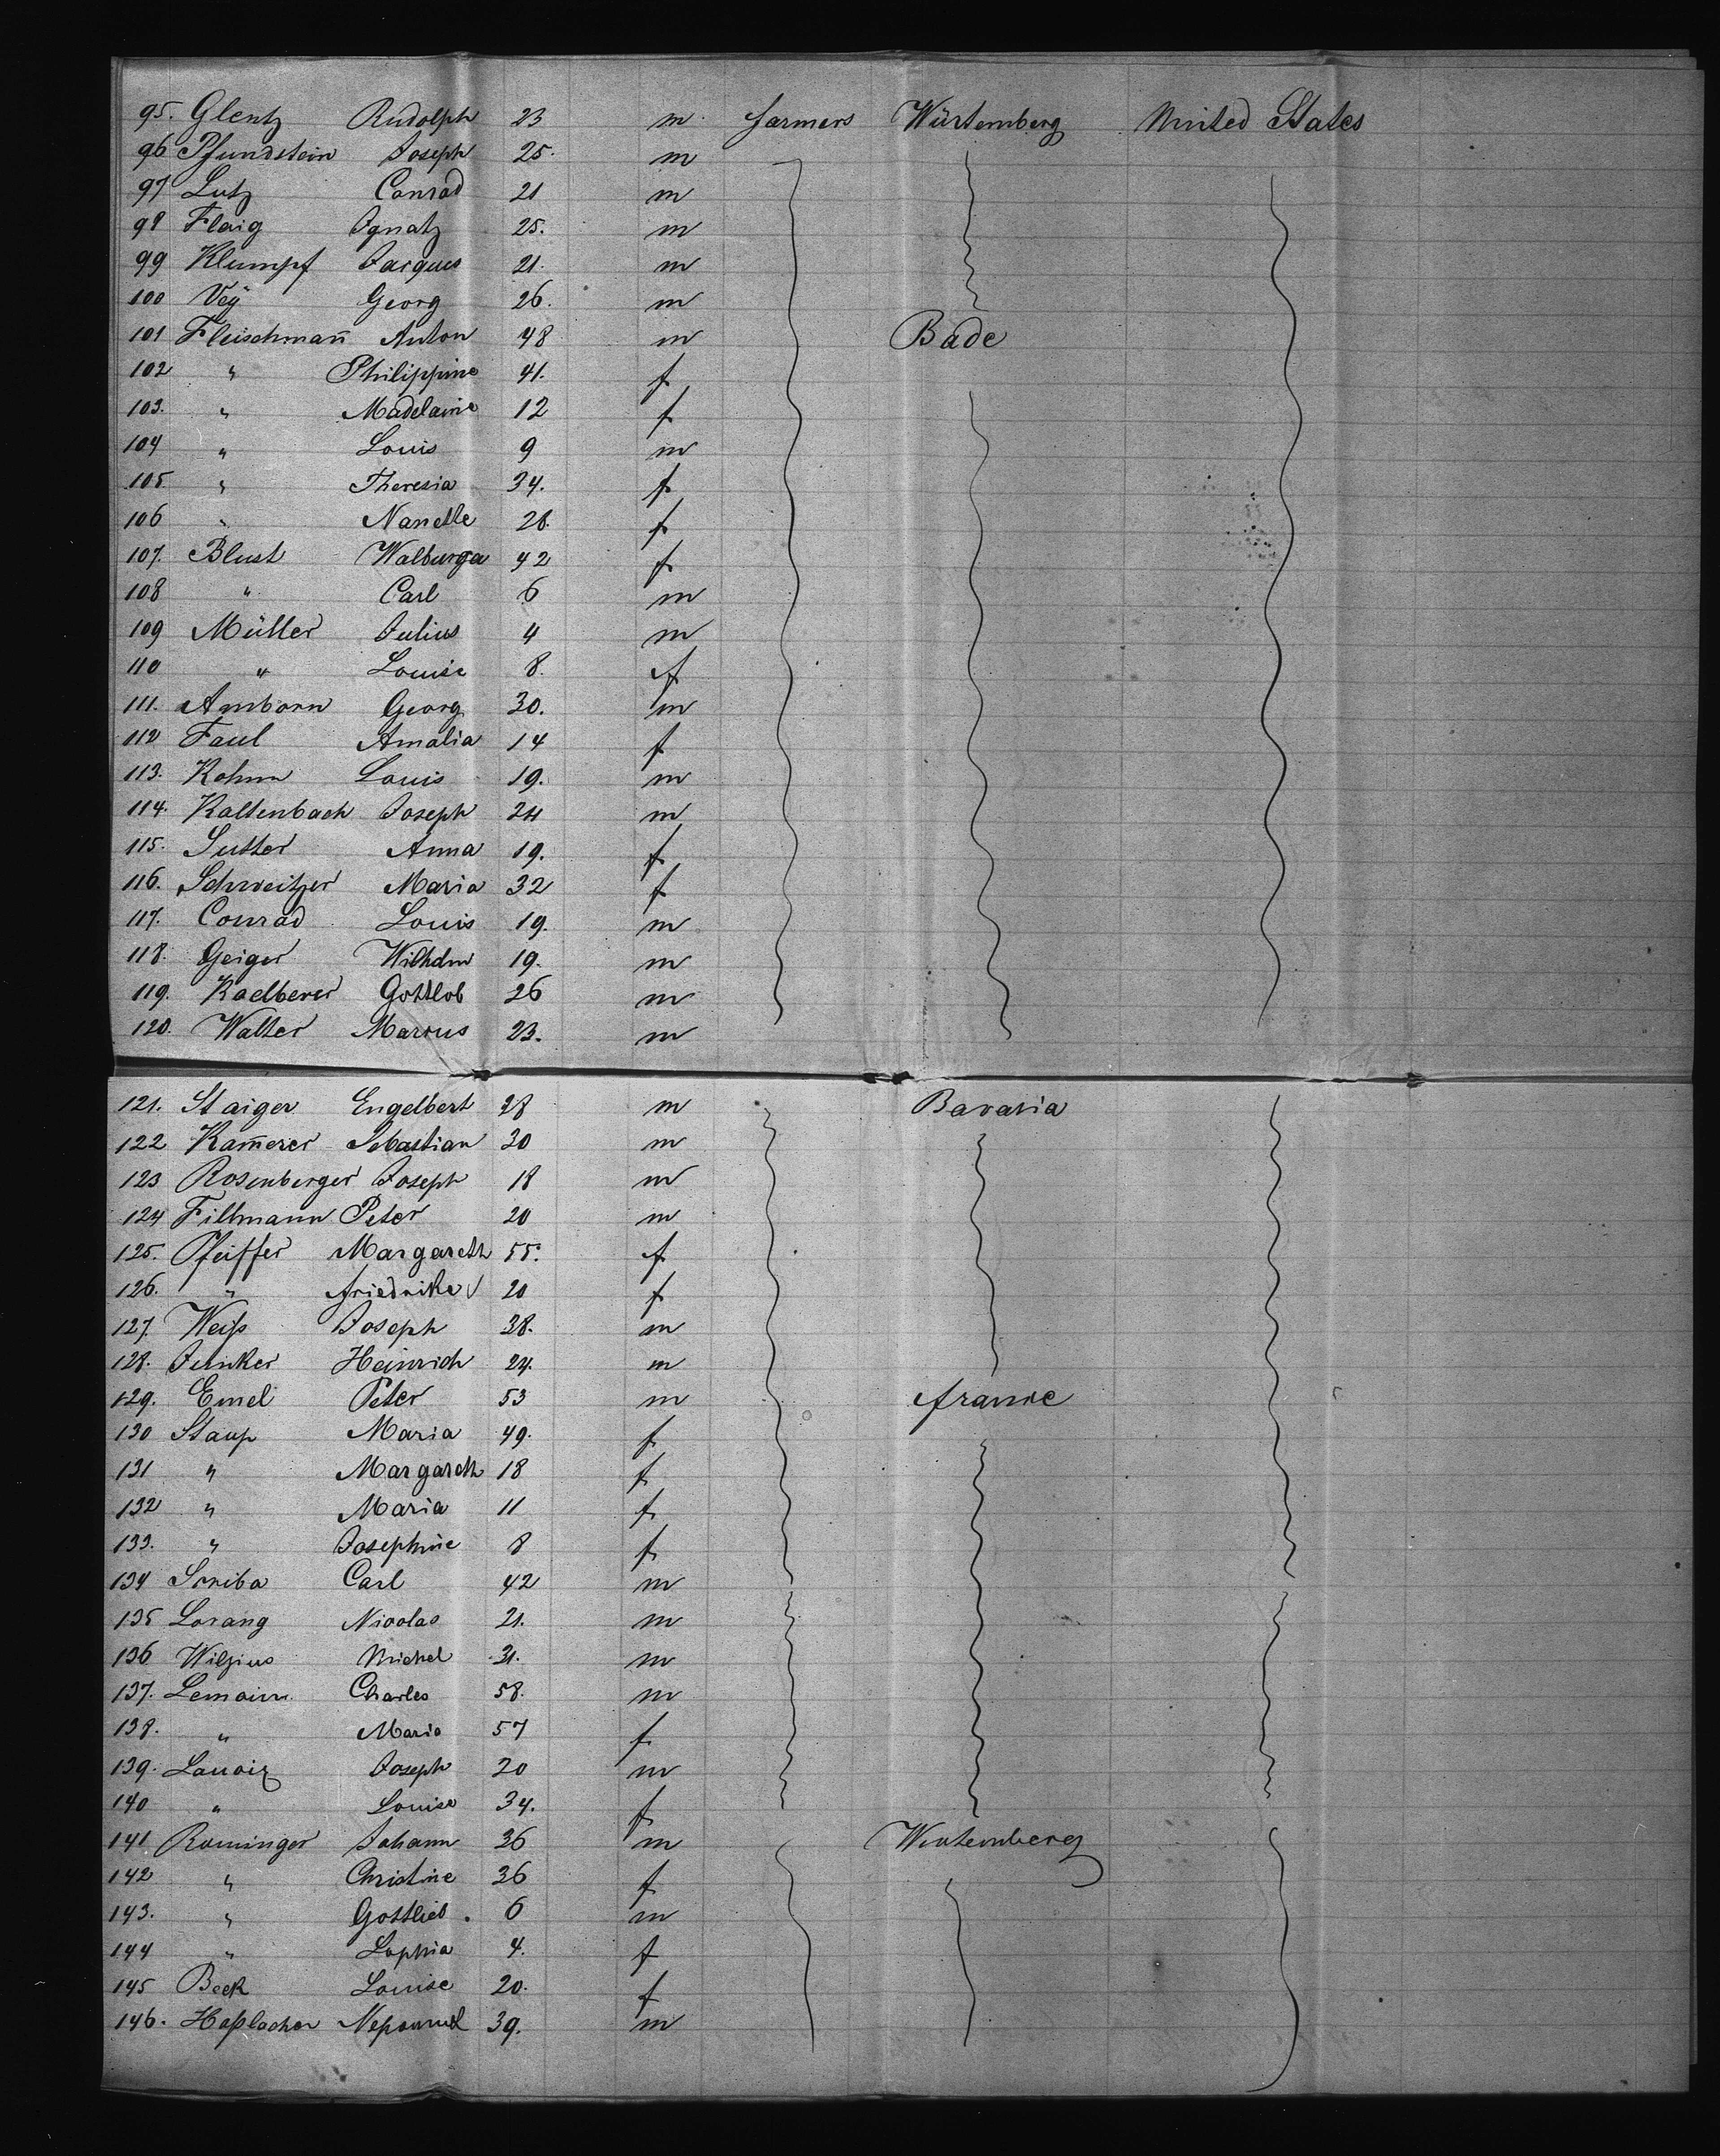 95. Glentz Rudolph 23 m. farmers Würtemberg United States
96 Pfundstein Joseph 25. m
97 Lutz Conrad 21 m
98 Flaig Ignatz 25. m
99 Klumpf Jacques 21. m
100 Veÿ Georg 26. m
101 Fleischman̄ Anton 48 m Bade
102 " Philippine 41. f
103. " Madelaine 12 f
104 " Louis 9 m
105. " Theresia 34. f
106 " Nanette 28. f
107. Blust Walburga 42 f
108 " Carl 6 m
109 Müller Julius 4 m
110 " Louise 8. f
111. Amborn Georg 30. m
112 Faul Amalia 14 f
113. Kohm Louis 19. m
114. Kaltenbach Joseph 24 m
115. Sutter Anna 19. f
116. Schweitzer Maria 32 f
117. Conrad Louis 19. m
118. Geiger Wilhelm 19. m
119. Kaelberer Gottlob 26 m
120. Walter Marcus 23. m
121. Staiger Engelbert 28 m Bavaria
122 Kam̄erer Sebastian 30 m
123 Rosenberger Joseph 18 m
124 Fillmann Peter 20 m
125. Pfeiffer Margareth 55. f
126. " friedrike 20 f
127. Weiß Joseph 38. m
128. Junker Heinrich 24. m
129. Emel Peter 53 m france
130 Staup Maria 49. f
131 " Margareth 18 f
132 " Maria 11 f
133. " Josephine 8 f
134 Scriba Carl 42 m
135 Lorang Nicolas 21. m
136 Wilzius Michel 31. m
137. Charles 58. m
138. " Maria 57 f
139. Joseph 20 m
140 " Louise 34. f
141 Rominger Johann 36 m Wurtemberg
142 " Christine 36 f
143. " Gottlieb. 6 m
144 " Sophia 4. f
145 Beck Louise 20. f
146. Haßlacher 39. m